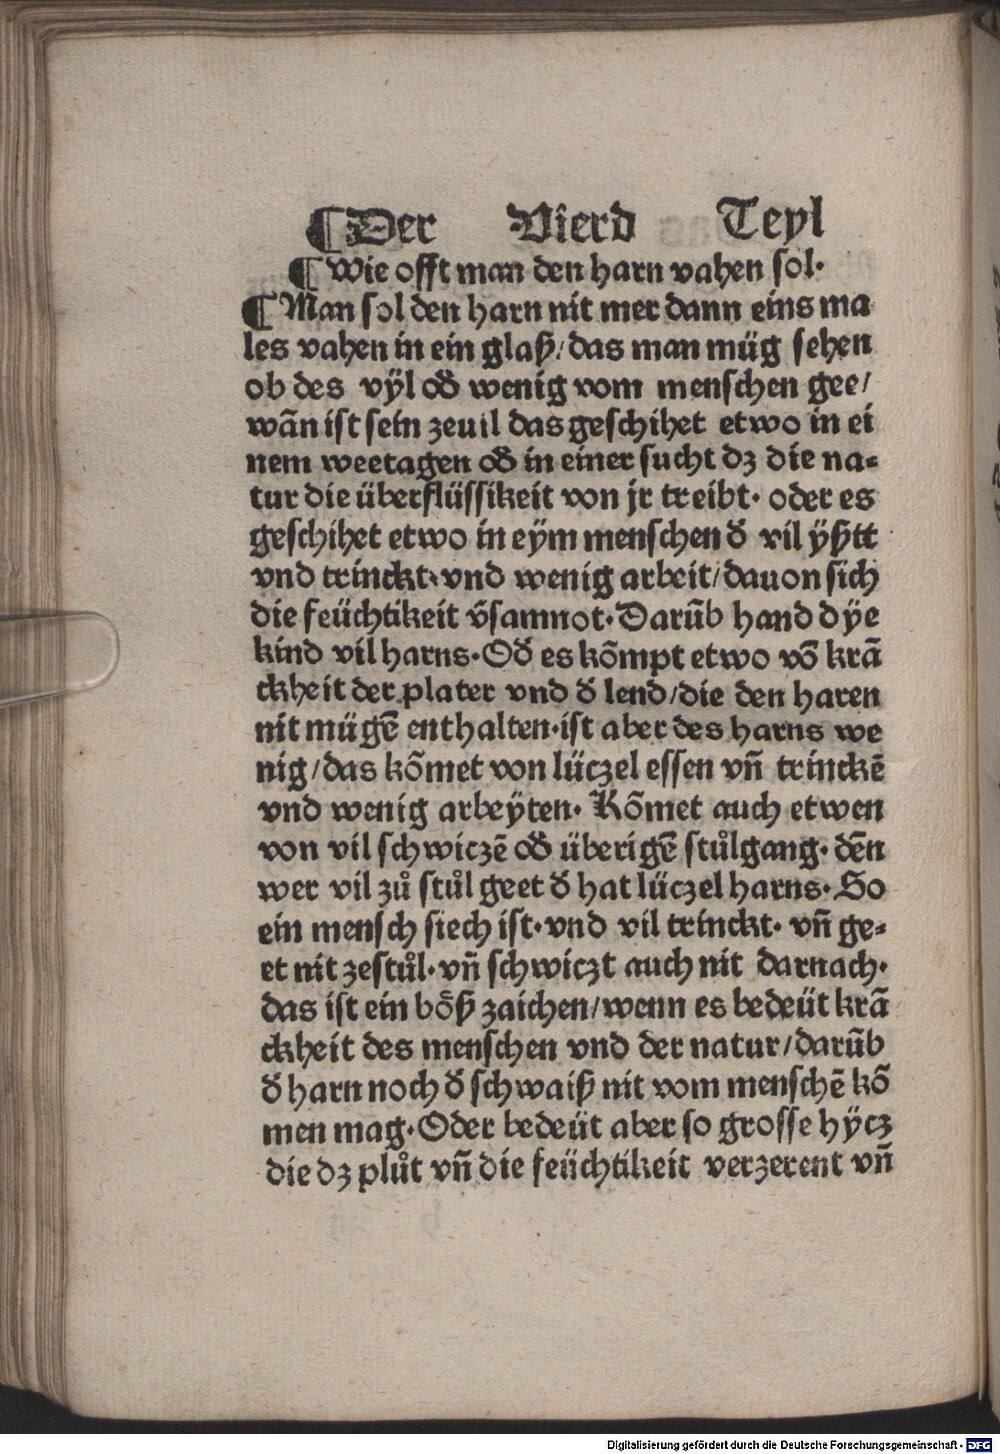 ¶Der Vierd Teyl
¶ Wie offt man den harn vahen sol·
¶ Man sol den harn nit mer dann eins ma
les vahen in ein glaß/das man müg sehen
ob des vÿl oď wenig vom menschen gee/
wañ ist sein zeuil das geschihet etwo in ei
nem weetagen oď in einer sucht dz die na⸗
tur die überflüssikeit von jr treibt· oder es
geschihet etwo in eÿm menschen ď vil ÿßtt
vnd trinckt·vnd wenig arbeit/dauon sich
die feüchtikeit v̄samnot·Darūb hand dÿe
kind vil harns·Oď es kōmpt etwo vō krā
ckheit der plater vnd ď lend/die den haren
nit mügē enthalten·ist aber des harns we
nig/das kōmet von lüczel essen vñ trinckē
vnd wenig arbeÿten· Kōmet auch etwen
von vil schwiczē oď überigē stůlgang· dēn
wer vil zů stůl geet ď hat lüczel harns· So
ein mensch siech ist·vnd vil trinckt· vñ ge⸗
et nit zestůl·vñ schwiczt auch nit darnach·
das ist ein bȫß zaichen/wenn es bedeüt krā
ckheit des menschen vnd der natur/darūb
ď harn noch ď schwaiß nit vom menschē kō
men mag·Oder bedeüt aber so grosse hÿcz
die dz plůt vñ die feüchtikeit verzerent vñ
Digitalisierung gefördert durch die Deutsche Forschungsgemeinschaft - DFG